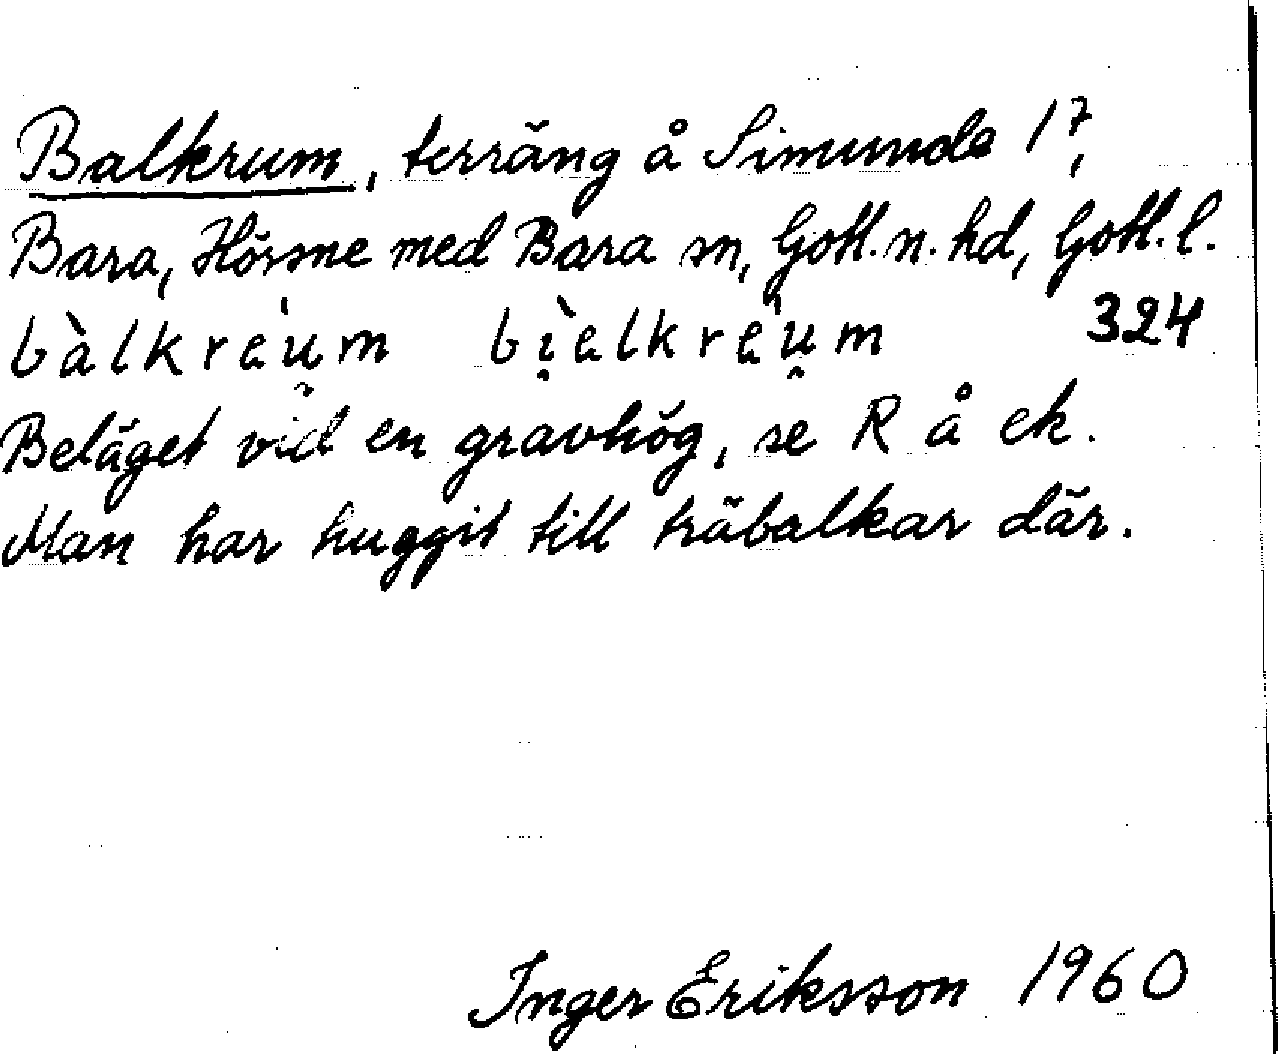 Balkrum, terräng å Simunde 17,
Bara, Hörsne med Bara sn, Gotl. n. hd, Gotl. l.
bàlkre̍u̯m bi̯èlkre̍u̯m 324
Beläget vid en gravhög, se R å ek.
Man har huggit till träbalkar där.
Inger Eriksson 1960